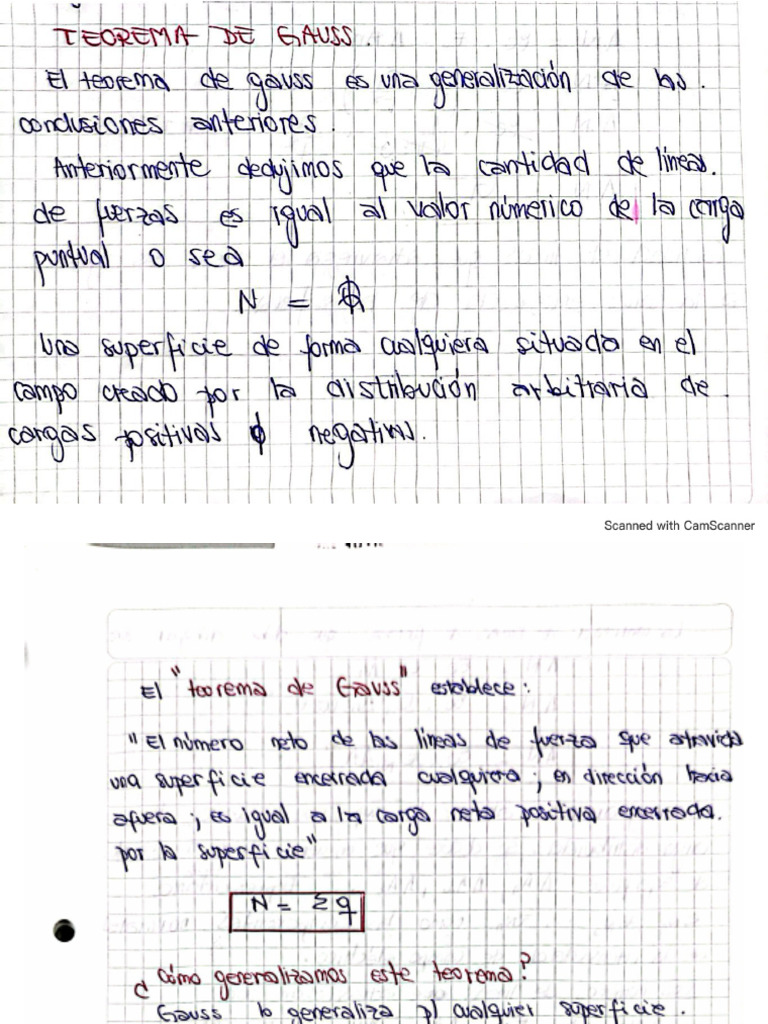 TEOREMA DE GAUSS.
El teorema de gauss es una generalización de las
conclusiones anteriores.
Anteriormente dedujimos que la cantidad de líneas.
de fuerzas es igual al valor númerico de la carga
puntual o sea
N = Q
Una superficie de forma cualquiera situada en el
campo creado por la distribución arbitraria de
cargas positivas o negativas.
Scanned with CamScanner
El "teorema de Gauss" establece:
"El número neto de las líneas de fuerza que atraviesa
una superficie encerrada cualquiera; en dirección hacia
afuera; es igual a la carga neta positiva encerrada.
por la superficie"
N = Σq
¿Cómo generalizamos este teorema?
Gauss lo generaliza p/ cualquier superficie.